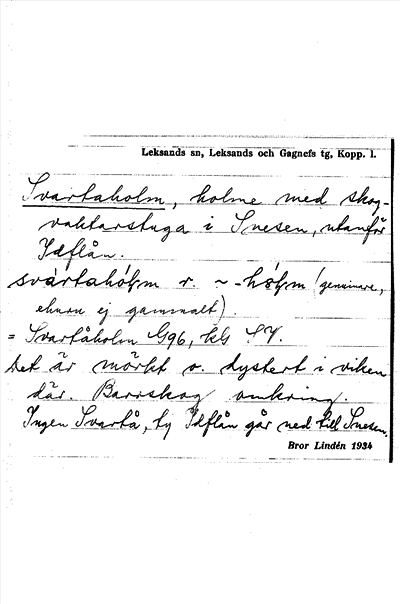 Leksands sn, Leksands och Gagnefs tg, Kopp. l.
Svartaholm, holme med skog-
vaktarstuga i Snesen, utanför
Idflån.
svártahóɫm r. ~ -hôɫm (genuinare,
ehuru ej gammalt).
= Svartåholm G96, kG SV.
Det är mörkt o. dystert i viken
där. Barrskog omkring.
Ingen Svartå, ty Idflån går ned till Snesen.
Bror Lindén 1934